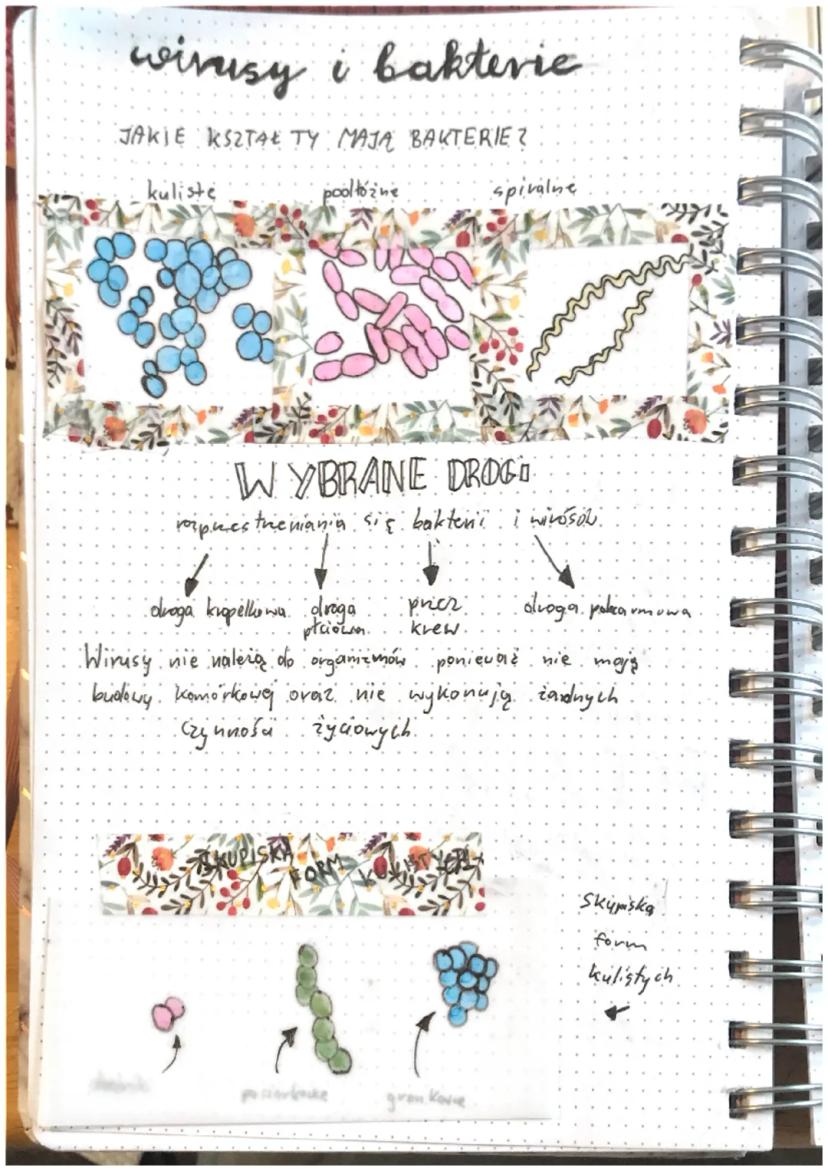 wirusy i bakterie
JAKIE KSZTAŁTY MAJĄ BAKTERIE?
kuliste podłóżne spiralne
WYBRANE DROGI
rozprzestrzeniania się bakterii i wirósów
droga kropelkowa droga płciowa przez krew droga pokarmowa
Wirusy nie należą do organizmów ponieważ nie mają
budowy komórkowej oraz nie wykonują żadnych
czynności życiowych.
SKUPISKA FORM KULISTYCH
Skupiska
form
kulistych